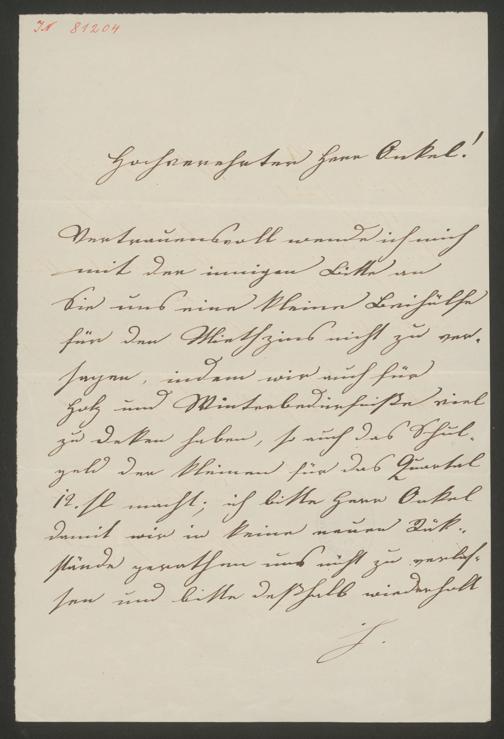 IN 81204
Hochverehrter Herr Onkel!
Vertrauensvoll wende ich mich
mit der innigen Bitte an
Sie uns eine kleine Beihülfe
für den Miethzins nicht zu ver-
sagen, indem wir auch für
Holz und Winterbedürfniße viel
zu deken haben, so auch das Schul-
geld der kleinen für das Quartal
12. fl macht; ich bitte Herr Onkel
damit wir in keine neuen Rük-
stände gerathen uns nicht zu verlas-
sen und bitte deßhalb wiederholt